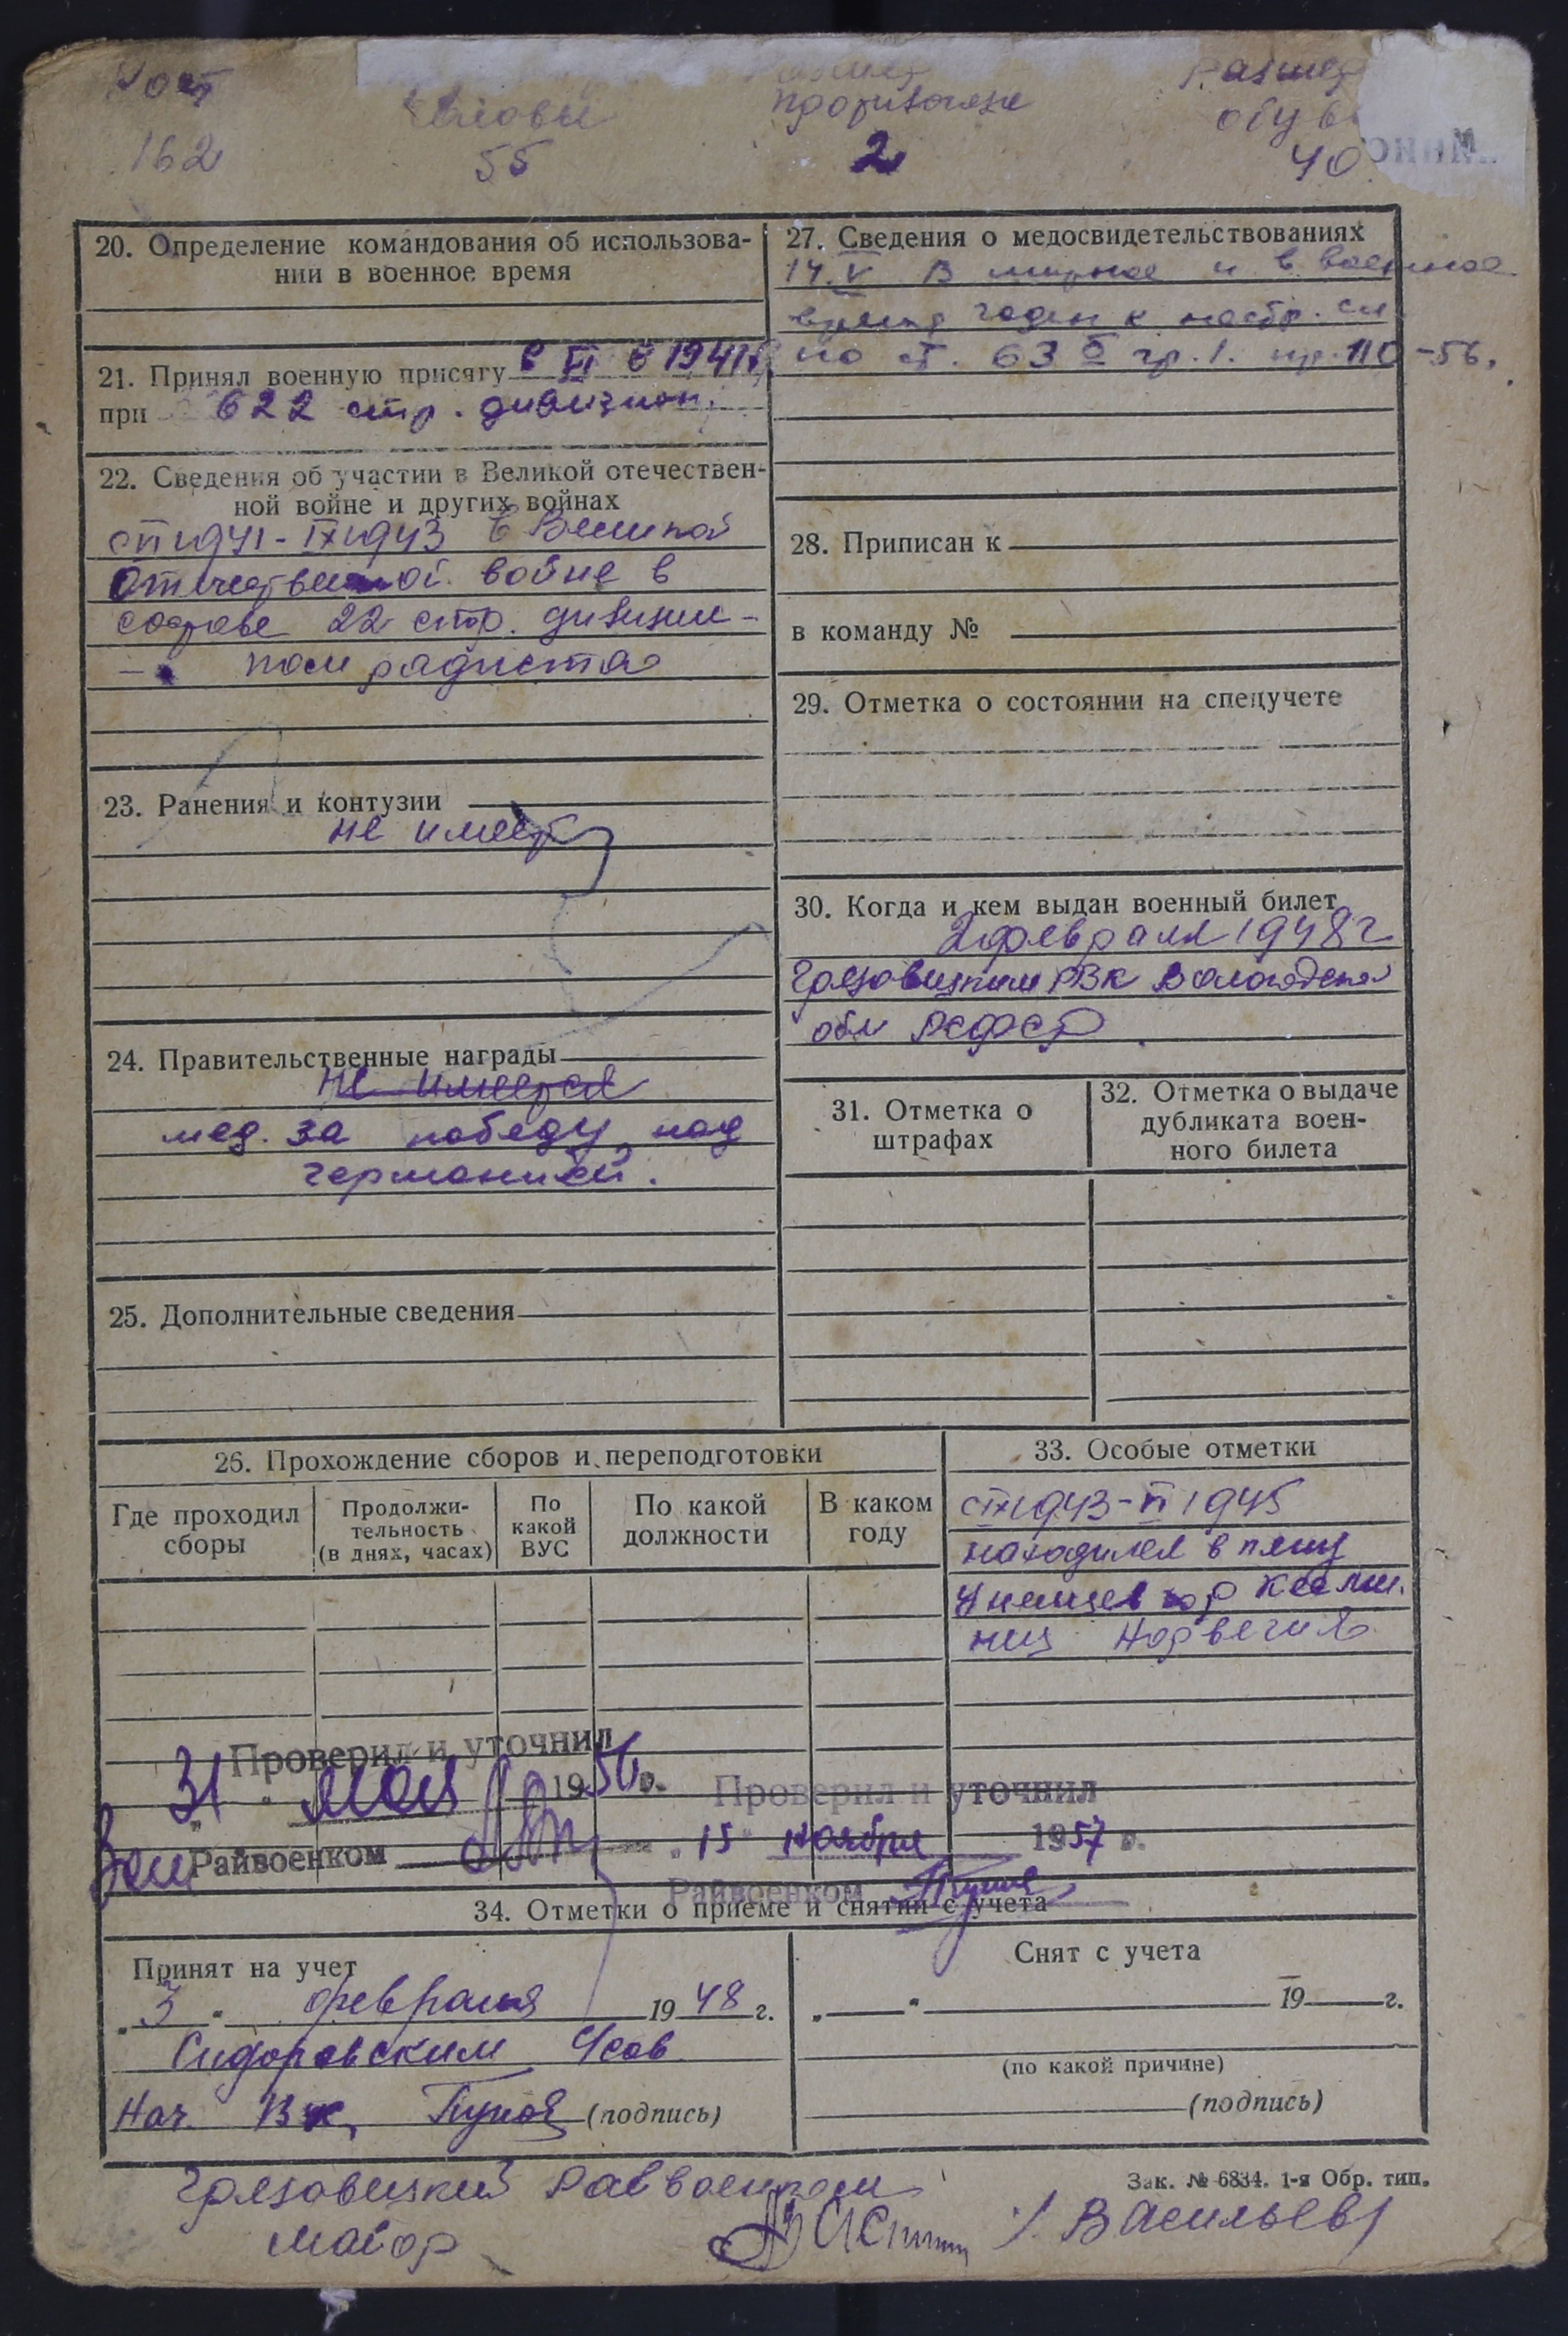 Рост
Головы
Размер
противогаза
Размер
обуви
162
55
2
40
20. Определение командования об использова-
нии в военное время
21. Принял военную присягу в VI б 1941 г
при 622 стр. дивизион.
22. Сведения об участии в Великой отечествен-
ной войне и других войнах
с VI 1941 - IX 1943 в Великой
Отечественной войне в
составе 22 стр. дивизии -
- пом радиста
23. Ранения и контузии
не имеет
24. Правительственные награды
не имеется
мед. за победу над
германией.
25. Дополнительные сведения
27. Сведения о медосвидетельствованиях
14. V В мирное и в военное
время годен к нестр. сл
по ст. 63 б гр. 1. пр. 110 -56.
28. Приписан к
в команду №
29. Отметка о состоянии на спецучете
30. Когда и кем выдан военный билет
2 февраля 1948 г
Грязовецким РВК Вологодской
обл РСФСР
31. Отметка о
штрафах
32. Отметка о выдаче
дубликата воен-
ного билета
26. Прохождение сборов и переподготовки
Где проходил
сборы
Продолжи-
тельность
(в днях, часах)
По
какой
ВУС
По какой
должности
В каком
году
33. Особые отметки
с IX 1943 - VI 1945
находился в плену
у немцев гор
Норвегия
Проверил и уточнил
31 " мая 1956 г.
Зам Райвоенком
Проверил и уточнил
" 15 " ноября 1957 г.
Райвоенком
34. Отметки о приеме и снятии с учета
Принят на учет
" 3 " февраля 1948 г.
Сидоровским Усов
Нач. (подпись)
Снят с учета
" " 19 г.
(по какой причине)
(подпись)
Зак. № 6834. 1-я Обр. тип.
Грязовецкий Райвоенком
майор / Васильев /